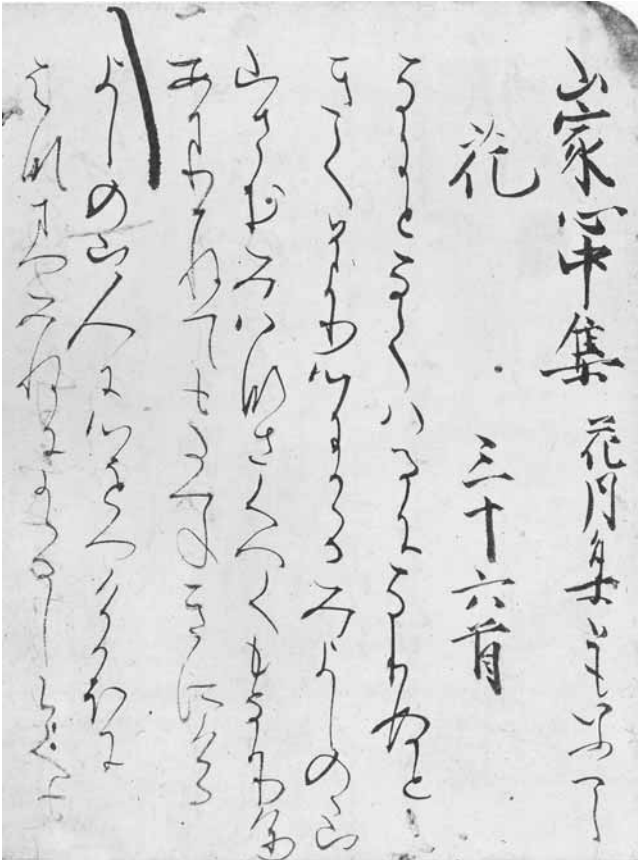 山家心中集 花月集ともいふへし
花 三十六首
なにとなくはるになりぬと
きくひより心にかゝるみよしのゝ山
山さむみ花さくへくもなかりけり
あまりかねてもたつねきにける
よしの山人に心をつけかほに
はなよりさきにかゝるしらくも